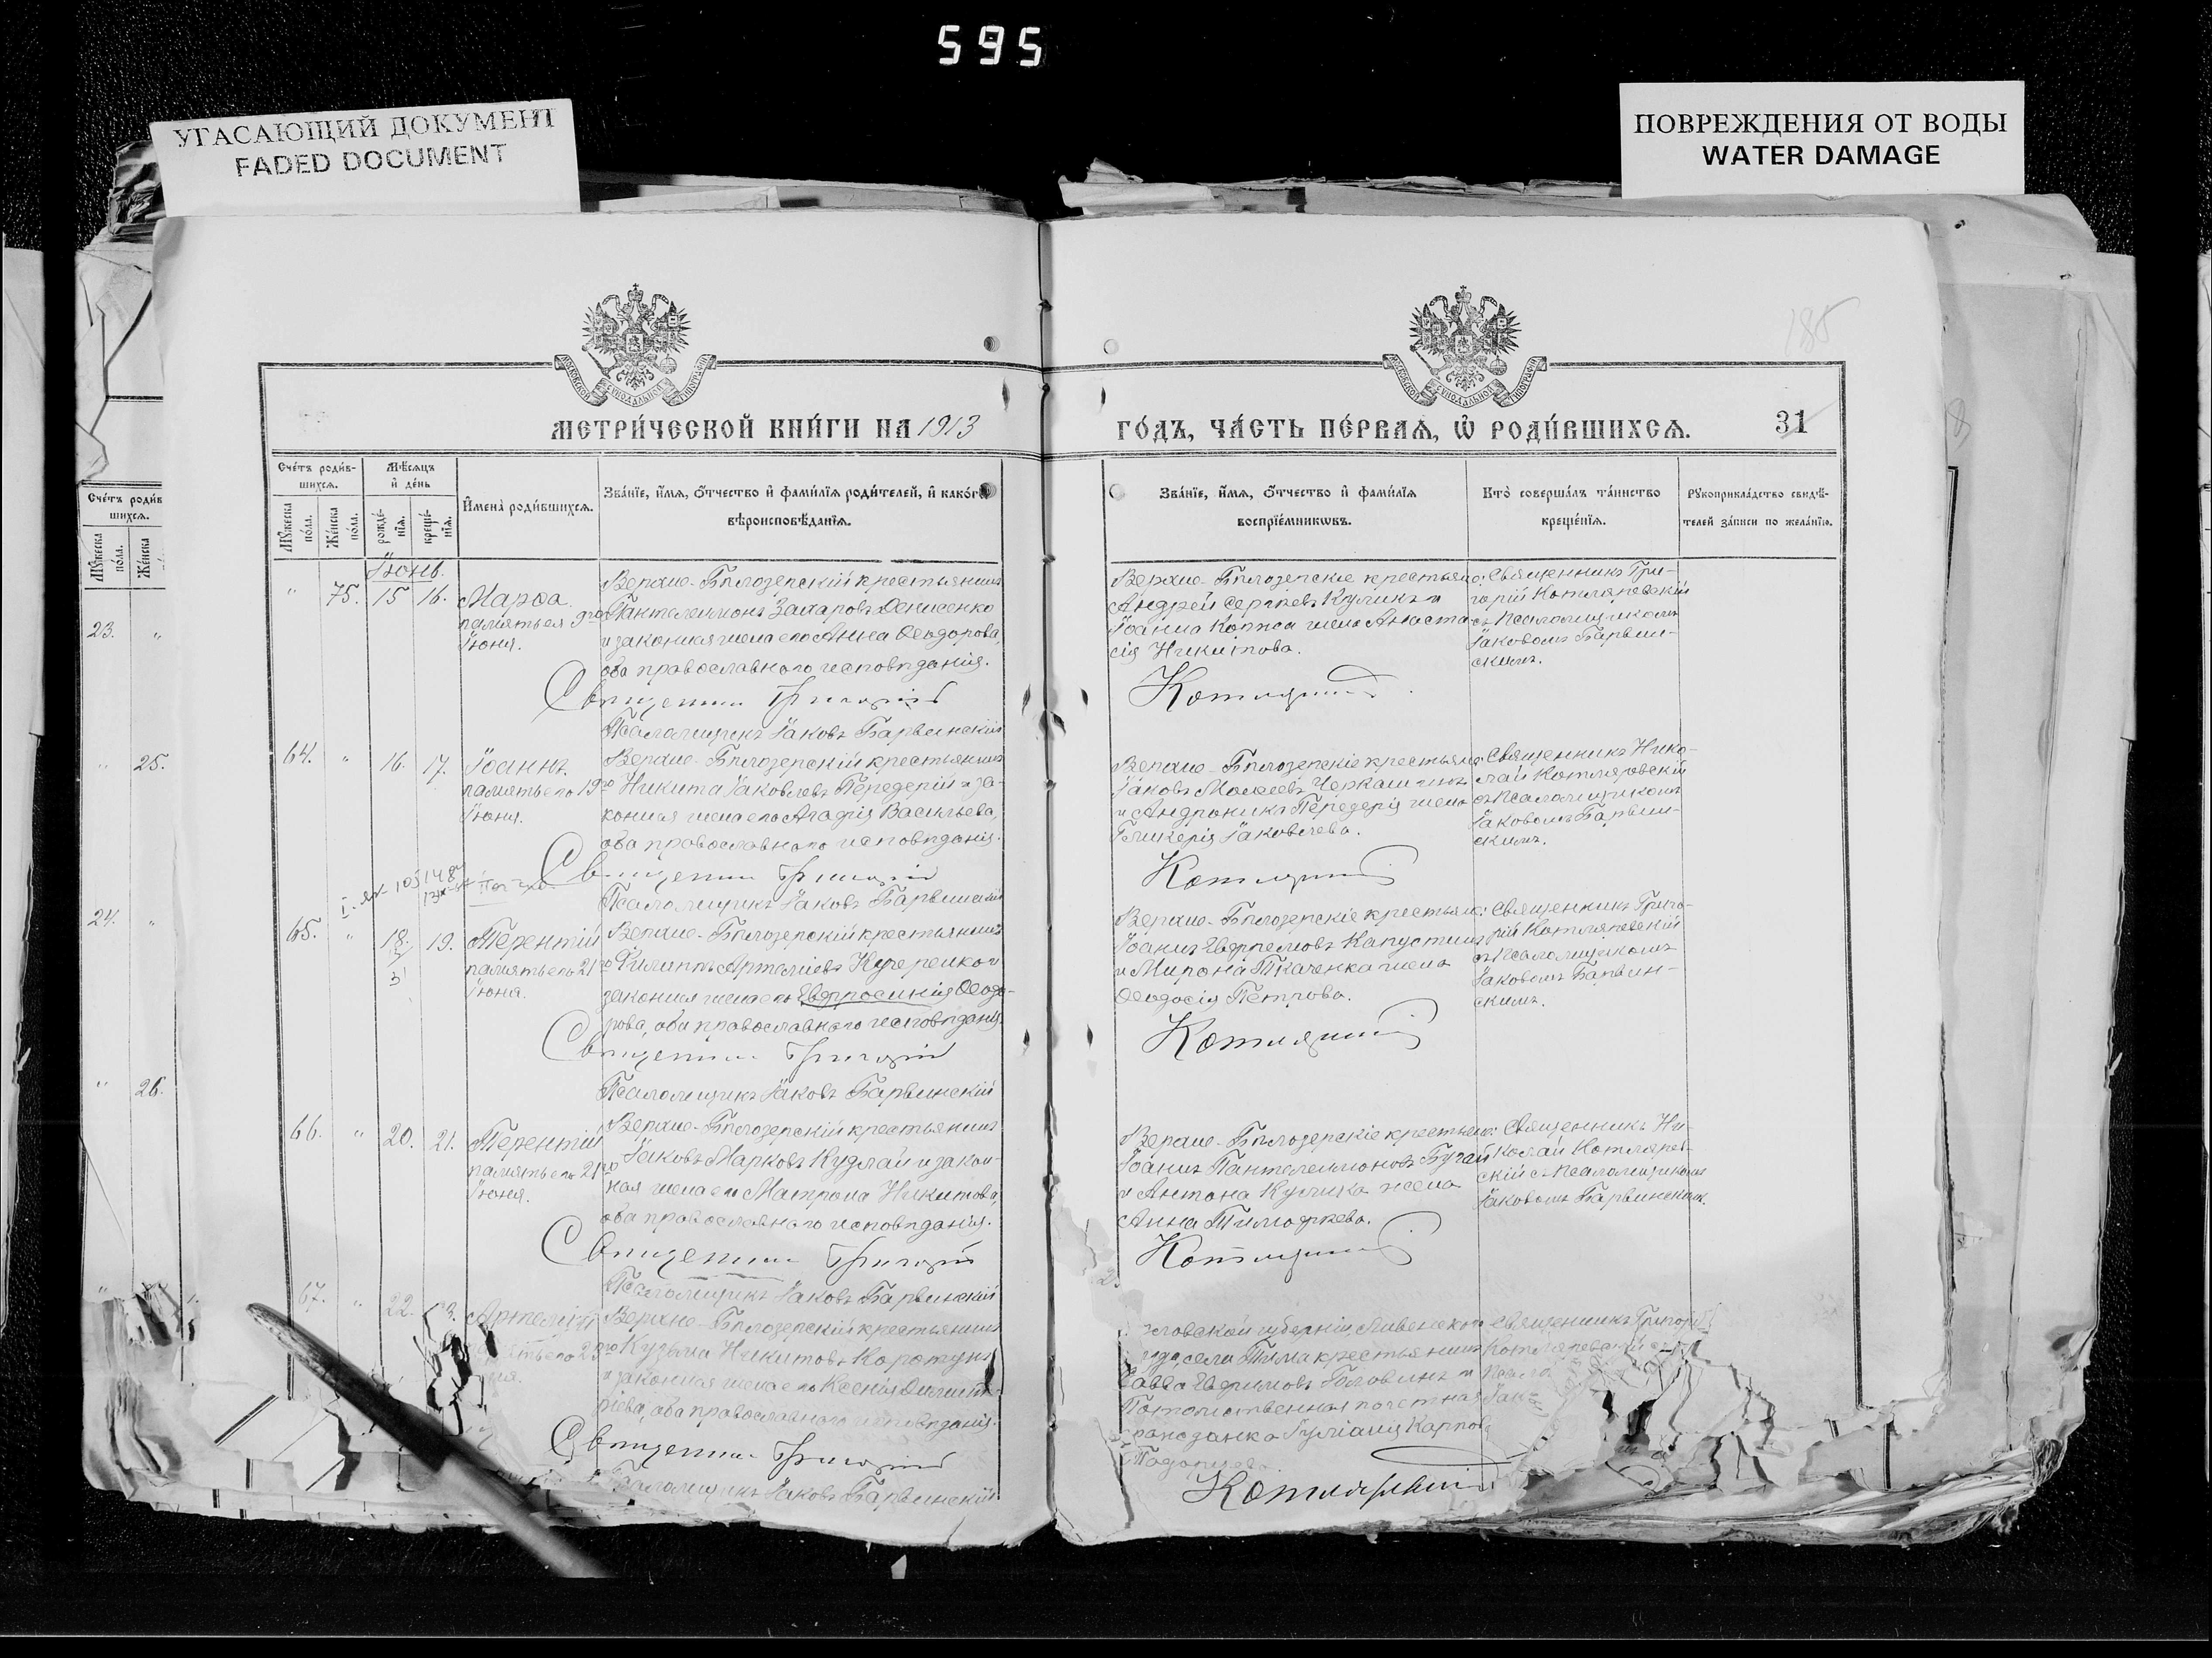 595
УГАСАЮЩИЙ ДОКУМЕНТ
FADED DOCUMENT
ПОВРЕЖДЕНИЯ ОТ ВОДЫ
WATER DAMAGE
185
МЕТРИ́ЧЕСКОЙ КНИ́ГИ НА 1913
ГО́ДЪ, ЧА́СТЬ ПЕ́РВАѦ, Ѡ҆ РОДИ́ВШИХСѦ.
31
Сче́тъ роди́в-
шихсѧ.
Мѣ́сѧцъ
и҆ де́нь
Му́жеска
по́ла.
Же́нска
по́ла.
рожде́-
нїѧ.
креще́-
нїѧ.
И҆мена̀ роди́вшихсѧ.
Зва́нїе, и҆́мѧ, ѻ҆́тчество и҆ фамилїѧ роди́телей, и҆ како́гѡ
вѣроисповѣ́данїѧ.
Зва́нїе, и҆́мѧ, ѻ҆́тчество и҆ фами́лїѧ
воспрїе́мникѡвъ.
Кто̀ соверша́лъ та́инство
креще́нїѧ.
Рꙋкоприкла́дство свидѣ́-
телей за́писи по жела́нїю.
Сче́тъ роди́в
шихсѧ.
Му́жеска
по́ла.
Же́нска
23. "
" 25.
24. "
" 26.
Іюнь.
" 75. 15 16. Марѳа
память ея 9го
Іюня.
Верхне-Бѣлозерскій крестьянинъ
Пантелеимонъ Захаровъ Денисенко
и законная жена его Анна Ѳеодорова,
оба православнаго исповѣданія.
Священник Григорій
Псаломщикъ Іаковъ Барвинскій
Верхне-Бѣлозерскіе крестьяне:
Андрей Сергіевъ Куликъ и
Іоанна Коппа жена Анаста-
сія Никитова.
Котляревскій
Священникъ Гри-
горій Котляревскій
съ псаломщикомъ
Іаковомъ Барвин-
скимъ.
64. " 16. 17. Іоаннъ.
память его 19го
Іюня.
Верхне-Бѣлозерскій крестьянинъ
Никита Іаковлевъ Передерій и за-
конная жена его Агафія Васильева,
оба православнаго исповѣданія.
Священник Григорій
Псаломщикъ Іаковъ Барвинскій
Верхне-Бѣлозерскіе крестьяне:
Іаковъ Моисеевъ Черкашинъ
и Андроника Передерія жена
Гликерія Іаковлева.
Котляревскій
Священникъ Нико-
лай Котляровскій
съ псаломщикомъ
Іаковомъ Барвин-
скимъ.
65. " 18. 19. Терентій
память его 21го
Іюня.
Верхне-Бѣлозерскій крестьянинъ
Филиппъ Артеміевъ Кучеренко и
законная жена его Евфросинія Ѳеодо-
рова, оба православнаго исповѣданія.
Священник Григорій
Псаломщикъ Іаковъ Барвинскій
Верхне-Бѣлозерскіе крестьяне:
Іоаннъ Евфремовъ Капустинъ
и Мирона Ткаченка жена
Ѳеодосія Петрова.
Котляревскій
Священникъ Григо-
рій Котляревскій
съ псаломщикомъ
Іаковомъ Барвин-
скимъ.
66. " 20. 21. Терентій
память его 21го
Іюня.
Верхне-Бѣлозерскій крестьянинъ
Іаковъ Марковъ Кудлай и закон-
ная жена его Матрона Никитова,
оба православнаго исповѣданія.
Священник Григорій
Псаломщикъ Іаковъ Барвинскій
Верхне-Бѣлозерскіе крестьяне:
Іоаннъ Пантелеимоновъ Бугай
и Антона Кулика жена
Анна Тимофеева.
Котляревскій
Священникъ Ни-
колай Котлярев-
скій съ псаломщикомъ
Іаковомъ Барвинскимъ.
67. " 22. 23. Артемій
Верхне-Бѣлозерскій крестьянинъ
Кузьма Никитовъ Коротунъ
и законная жена его Ксенія Димит-
ріева, оба православнаго исповѣданія.
Священник Григорій
Псаломщикъ Іаковъ Барвинскій
губерніи, Ливенскаго
села Тима крестьянинъ
Савва Евфимовъ Головинъ и
Потомственная почетная
гражданка Іуліанія Карпова
Котляревскій
Священникъ Григорій
Котляревскій